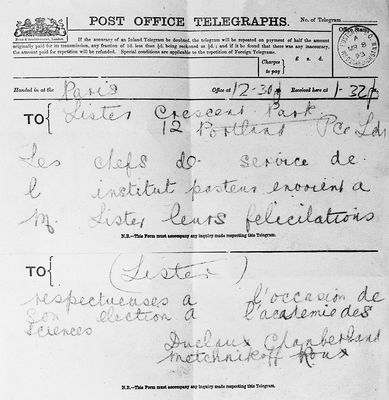 POST OFFICE TELEGRAPHS.
No. of Telegram
If the accuracy of an Inland Telegram be doubted, the telegram will be repeated on payment of half the amount
originally paid for its transmission, any fraction of 1d. less than ½d. being reckoned as ½d.; and if it be found that there was any inaccuracy,
the amount paid for repetition will be refunded. Special conditions are applicable to the repetition of Foreign Telegrams.
Charges to pay
£ s. d.
Handed in at the Paris Office at 12-30p Received here at 1-32p
TO Lister Crescent Park
12 Portland Pce Ldn
Les chefs de service de
l institut pasteur envoient a
M. Lister leurs felicitations
N.B.—This Form must accompany any inquiry made respecting this Telegram.
TO (Lister)
respectueuses a l'occasion de
son election a l'academie des
sciences
Duclaux Chamberland
Metchnikoff Roux
N.B.—This Form must accompany any inquiry made respecting this Telegram.